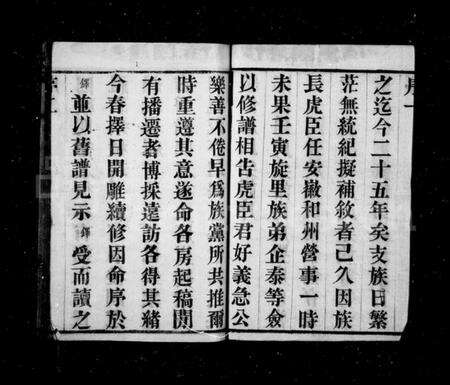 序一
之迄今二十五年矣支族日繁
茫無統紀擬補敘者已久因族
長虎臣任安徽和州營事一時
未果壬寅旋里族弟企泰等僉
以修譜相告虎臣君好義急公
樂善不倦早爲族黨所共推爾
時重遵其意遂命各房起稿間
有播遷者博採遠訪各得其緒
今春擇日開雕續修因命序於
鐸並以舊譜見示鐸受而讀之